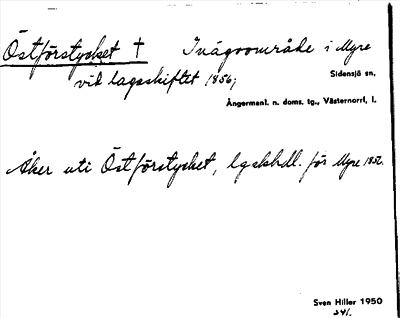 Östförstycket † Inägoområde i Myre
vid lagaskiftet 1856;
Sidensjö sn,
Ångermanl. n. doms. tg., Västernorrl. l.
Åker uti Östförstycket, lgskhdl. för Myre 1852.
Sven Hiller 1950